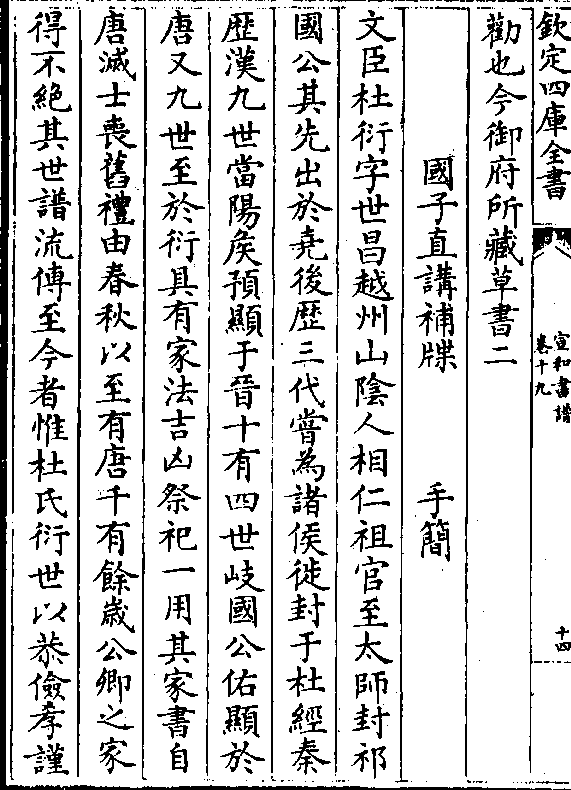 欽定四庫全書
宣和書譜
卷十九
十四
勸也今御府所藏草書二
國子直講補牒 手簡
文臣杜衍字世昌越州山陰人相仁祖官至太師封祁
國公其先出於堯後歴三代嘗為諸侯徙封于杜經秦
歴漢九世當陽侯預顯于晉十有四世岐國公佑顯於
唐又九世至於衍具有家法吉凶祭祀一用其家書自
唐滅士喪舊禮由春秋以至有唐千有餘歲公卿之家
得不絕其世譜流傳至今者惟杜氏衍世以恭儉孝謹